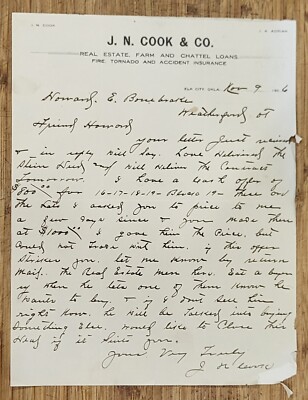 J. N. COOK
J. N. COOK & CO.
REAL ESTATE, FARM AND CHATTEL LOANS
FIRE, TORNADO AND ACCIDENT INSURANCE
ELK CITY, OKLA. Nov 9 6
Howard E. Bonebrake
Weatherford OT
Friend Howard
your letter just received
& in reply will say. have delivered the
deed and will deliver the
tomorrow. I have a cash offer of
$800 for 16-17-18-19- Block 19-
the lots & asked you to price to me
a few days since & you made them
at $1000 I gave him the Price. but
could not trade with him. if this offer
strikes you. let me know by return
mail. The Real Estate men here. Let a buyer
is when he lets one of them know he
wants to buy, & if I don't sell him
right now. he will be talked into buying
something else. would like to close this
deal if it suits you.
Yours Very Truly
J. N. Cook